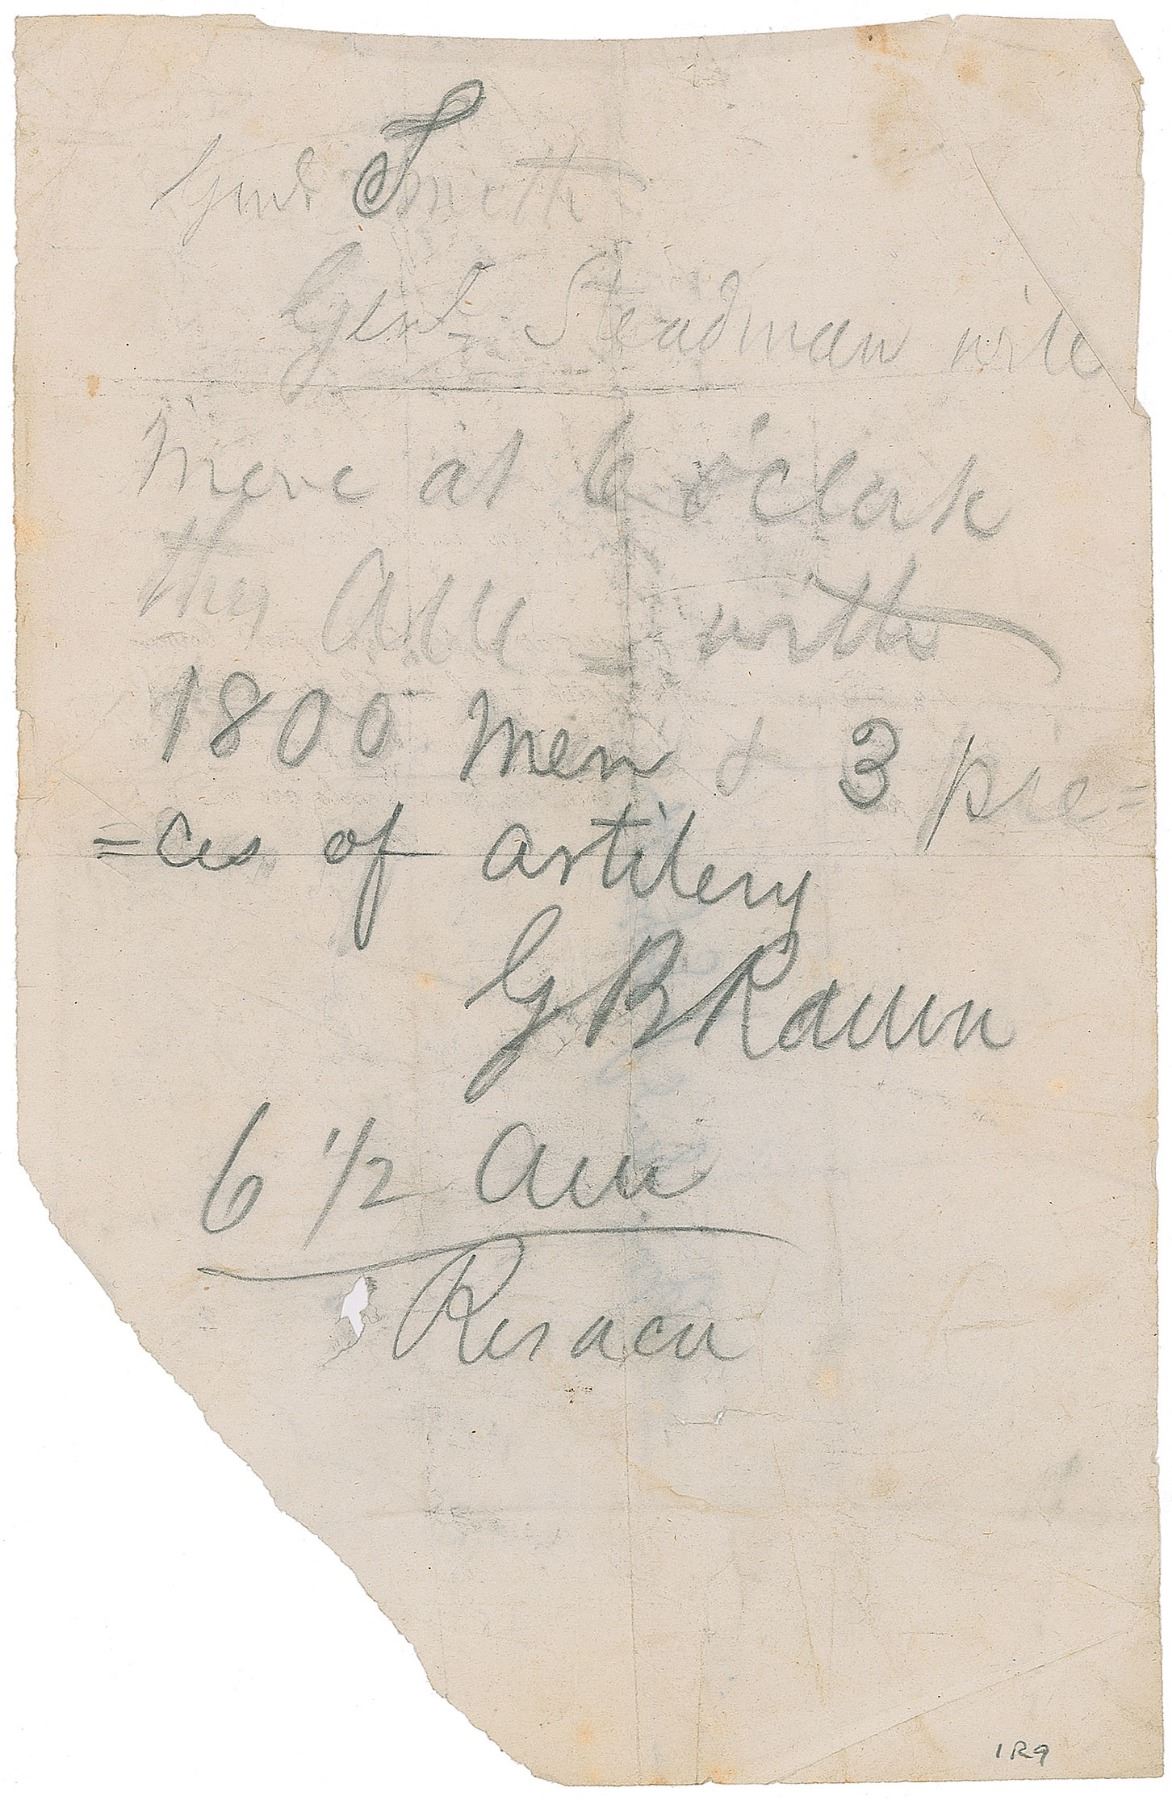 Genl Smith
Genl Steadman will
move at 6 o'clock
this AM - with
1800 men & 3 pie=
=ces of artilery
G B Raum
6 1/2 AM
Resaca
1R9